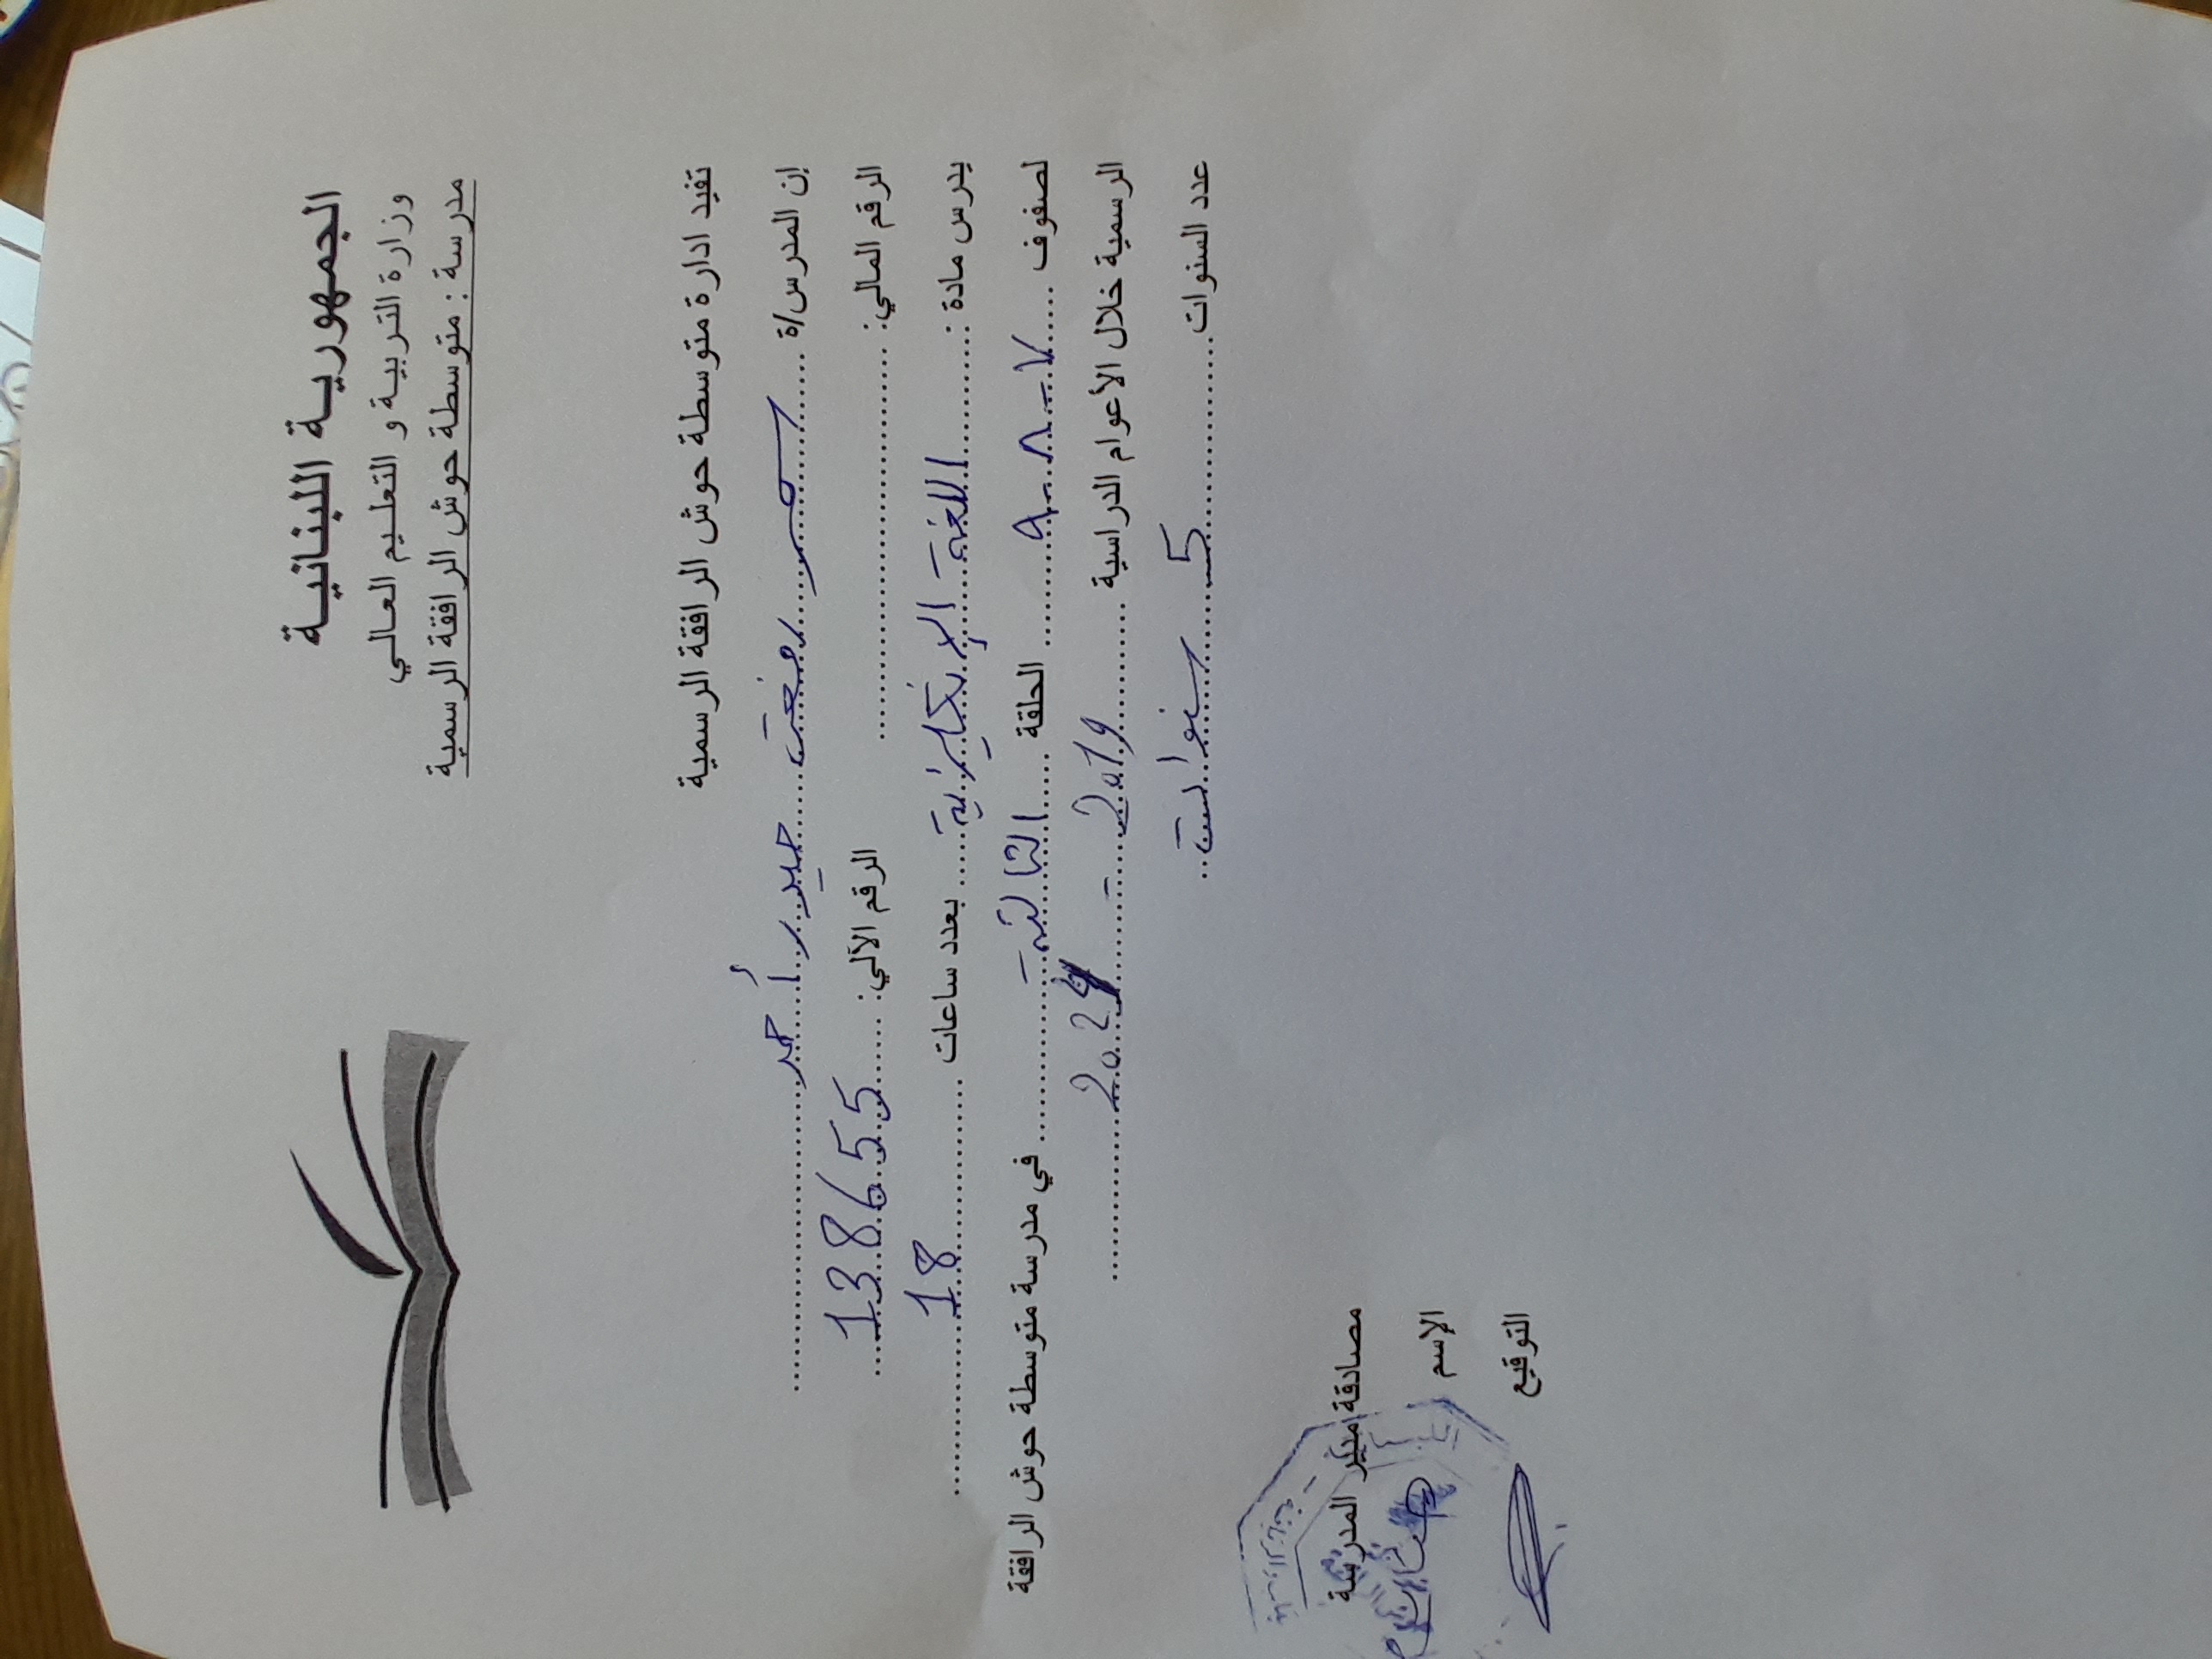 الجمهورية اللبنانية
وزارة التربية و التعليم العالي
مدرسة : متوسطة حوش الرافقة الرسمية
تفيد ادارة متوسطة حوش الرافقة الرسمية
إن المدرس/ة ........ رفعت حيدر أحمد ........
الرقم المالي: ........ الرقم الآلي: ........ 138655 ........
يدرس مادة : ........ اللغة الإنكليزية ........ بعدد ساعات ........ 18 ........
لصفوف ........ ٧ - ٨ - ٩ ........ الحلقة ........ الثالثة ........ في مدرسة متوسطة حوش الرافقة
الرسمية خلال الأعوام الدراسية ........ 2019 - 2024 ........
عدد السنوات ........ 5 سنوات ........
مصادقة مدير المدرسة
الإسم
التوقيع